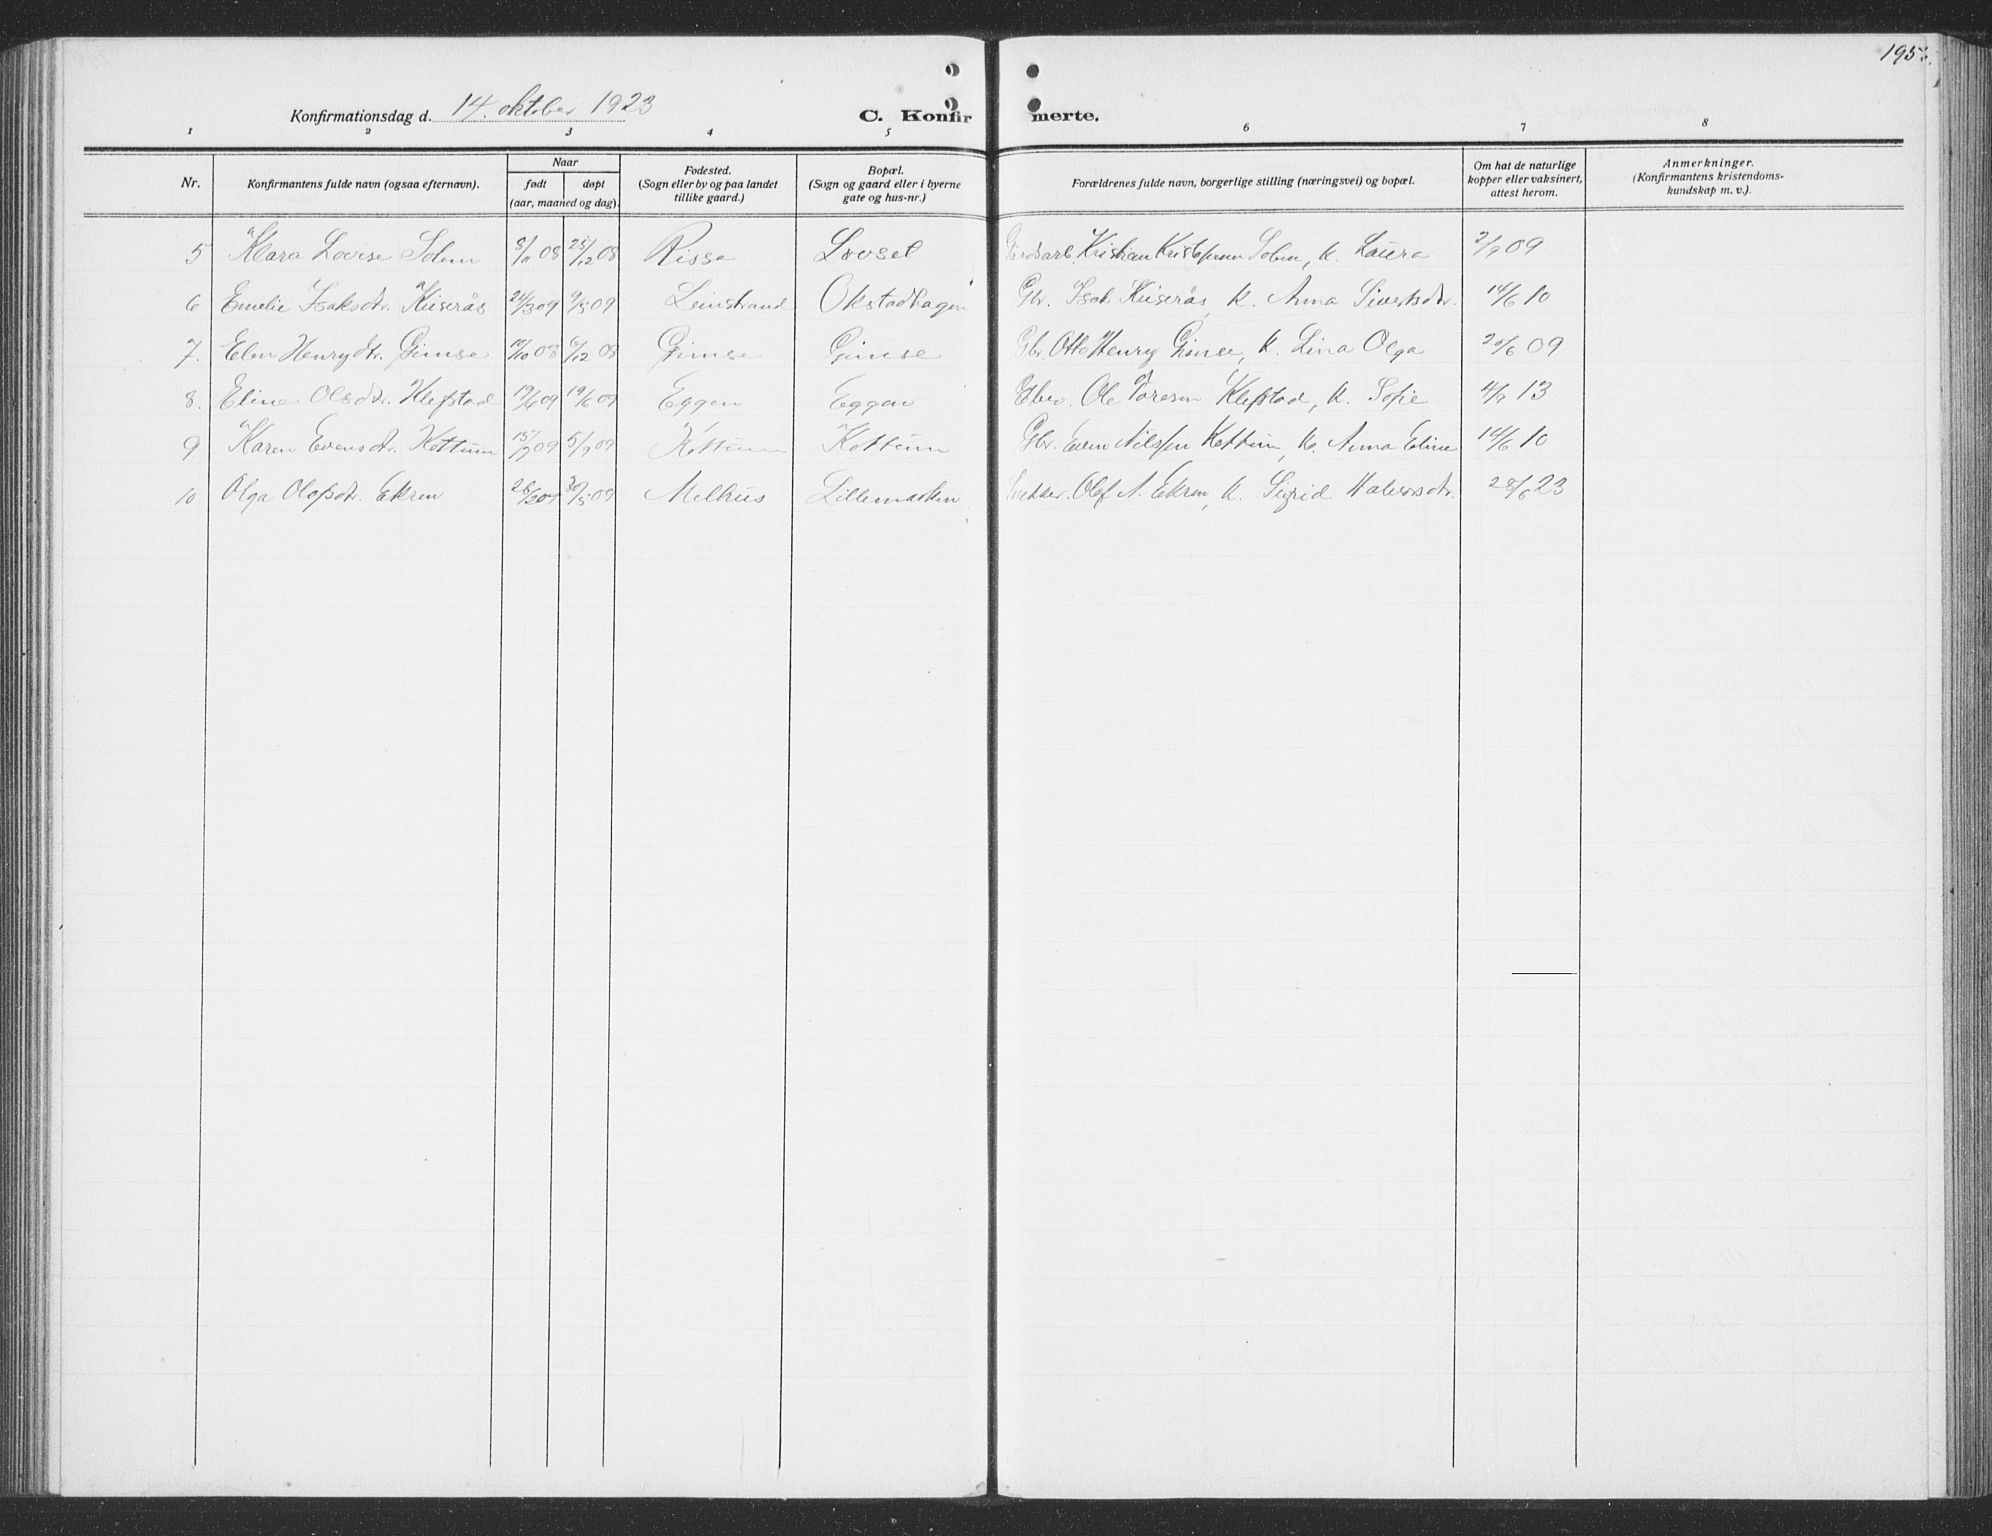 195.
Konfirmationsdag d. 14. oktober 1923
C. Konfirmerte.
1 2 3 4 5 6 7 8
Nr. Konfirmantens fulde navn (ogsaa efternavn). Naar født døpt (aar, maaned og dag). Fødested. (Sogn eller by og paa landet tillike gaard.) Bopæl. (Sogn og gaard eller i byerne gate og hus-nr.) Forældrenes fulde navn, borgerlige stilling (næringsvei) og bopæl. Om hat de naturlige kopper eller vaksinert, attest herom. Anmerkninger. (Konfirmantens kristendomskundskap m. v.).
5 Klara Lovise Solem 8/11 08 25/12 08 Rissa Lovset Gardsarb. Kristian Solem, K. Laura 2/9 09
6 Emelie Isaksdtr. Kuserås 24/3 09 9/5 09 Leinstrand Okstadhagen Gbr. Isak Kuserås, K. Anna Sivertsdtr. 14/6 10
7. Elen Henrydtr. Gimse 08 6/12 08 Gimse Gimse Gbr. Otto Henry Gimse, K. Lina Olga 20/6 09
8. Eline Olsdtr. Klefstad 19/4 09 19/6 09 Eggen Eggen Ole Toresen Klefstad, K. Sofie 13
9. Karen Evensdtr. Kottum 09 5/9 09 Kottum Kottum Gbr. Even Nilssen Kottum, K. Anna Eline 14/6 10
10 Olga Olafsdtr. Ekren 30/5 09 Melhus Lillemarken Snekker. Olaf A. Ekren, K. Sigrid 28/6 23